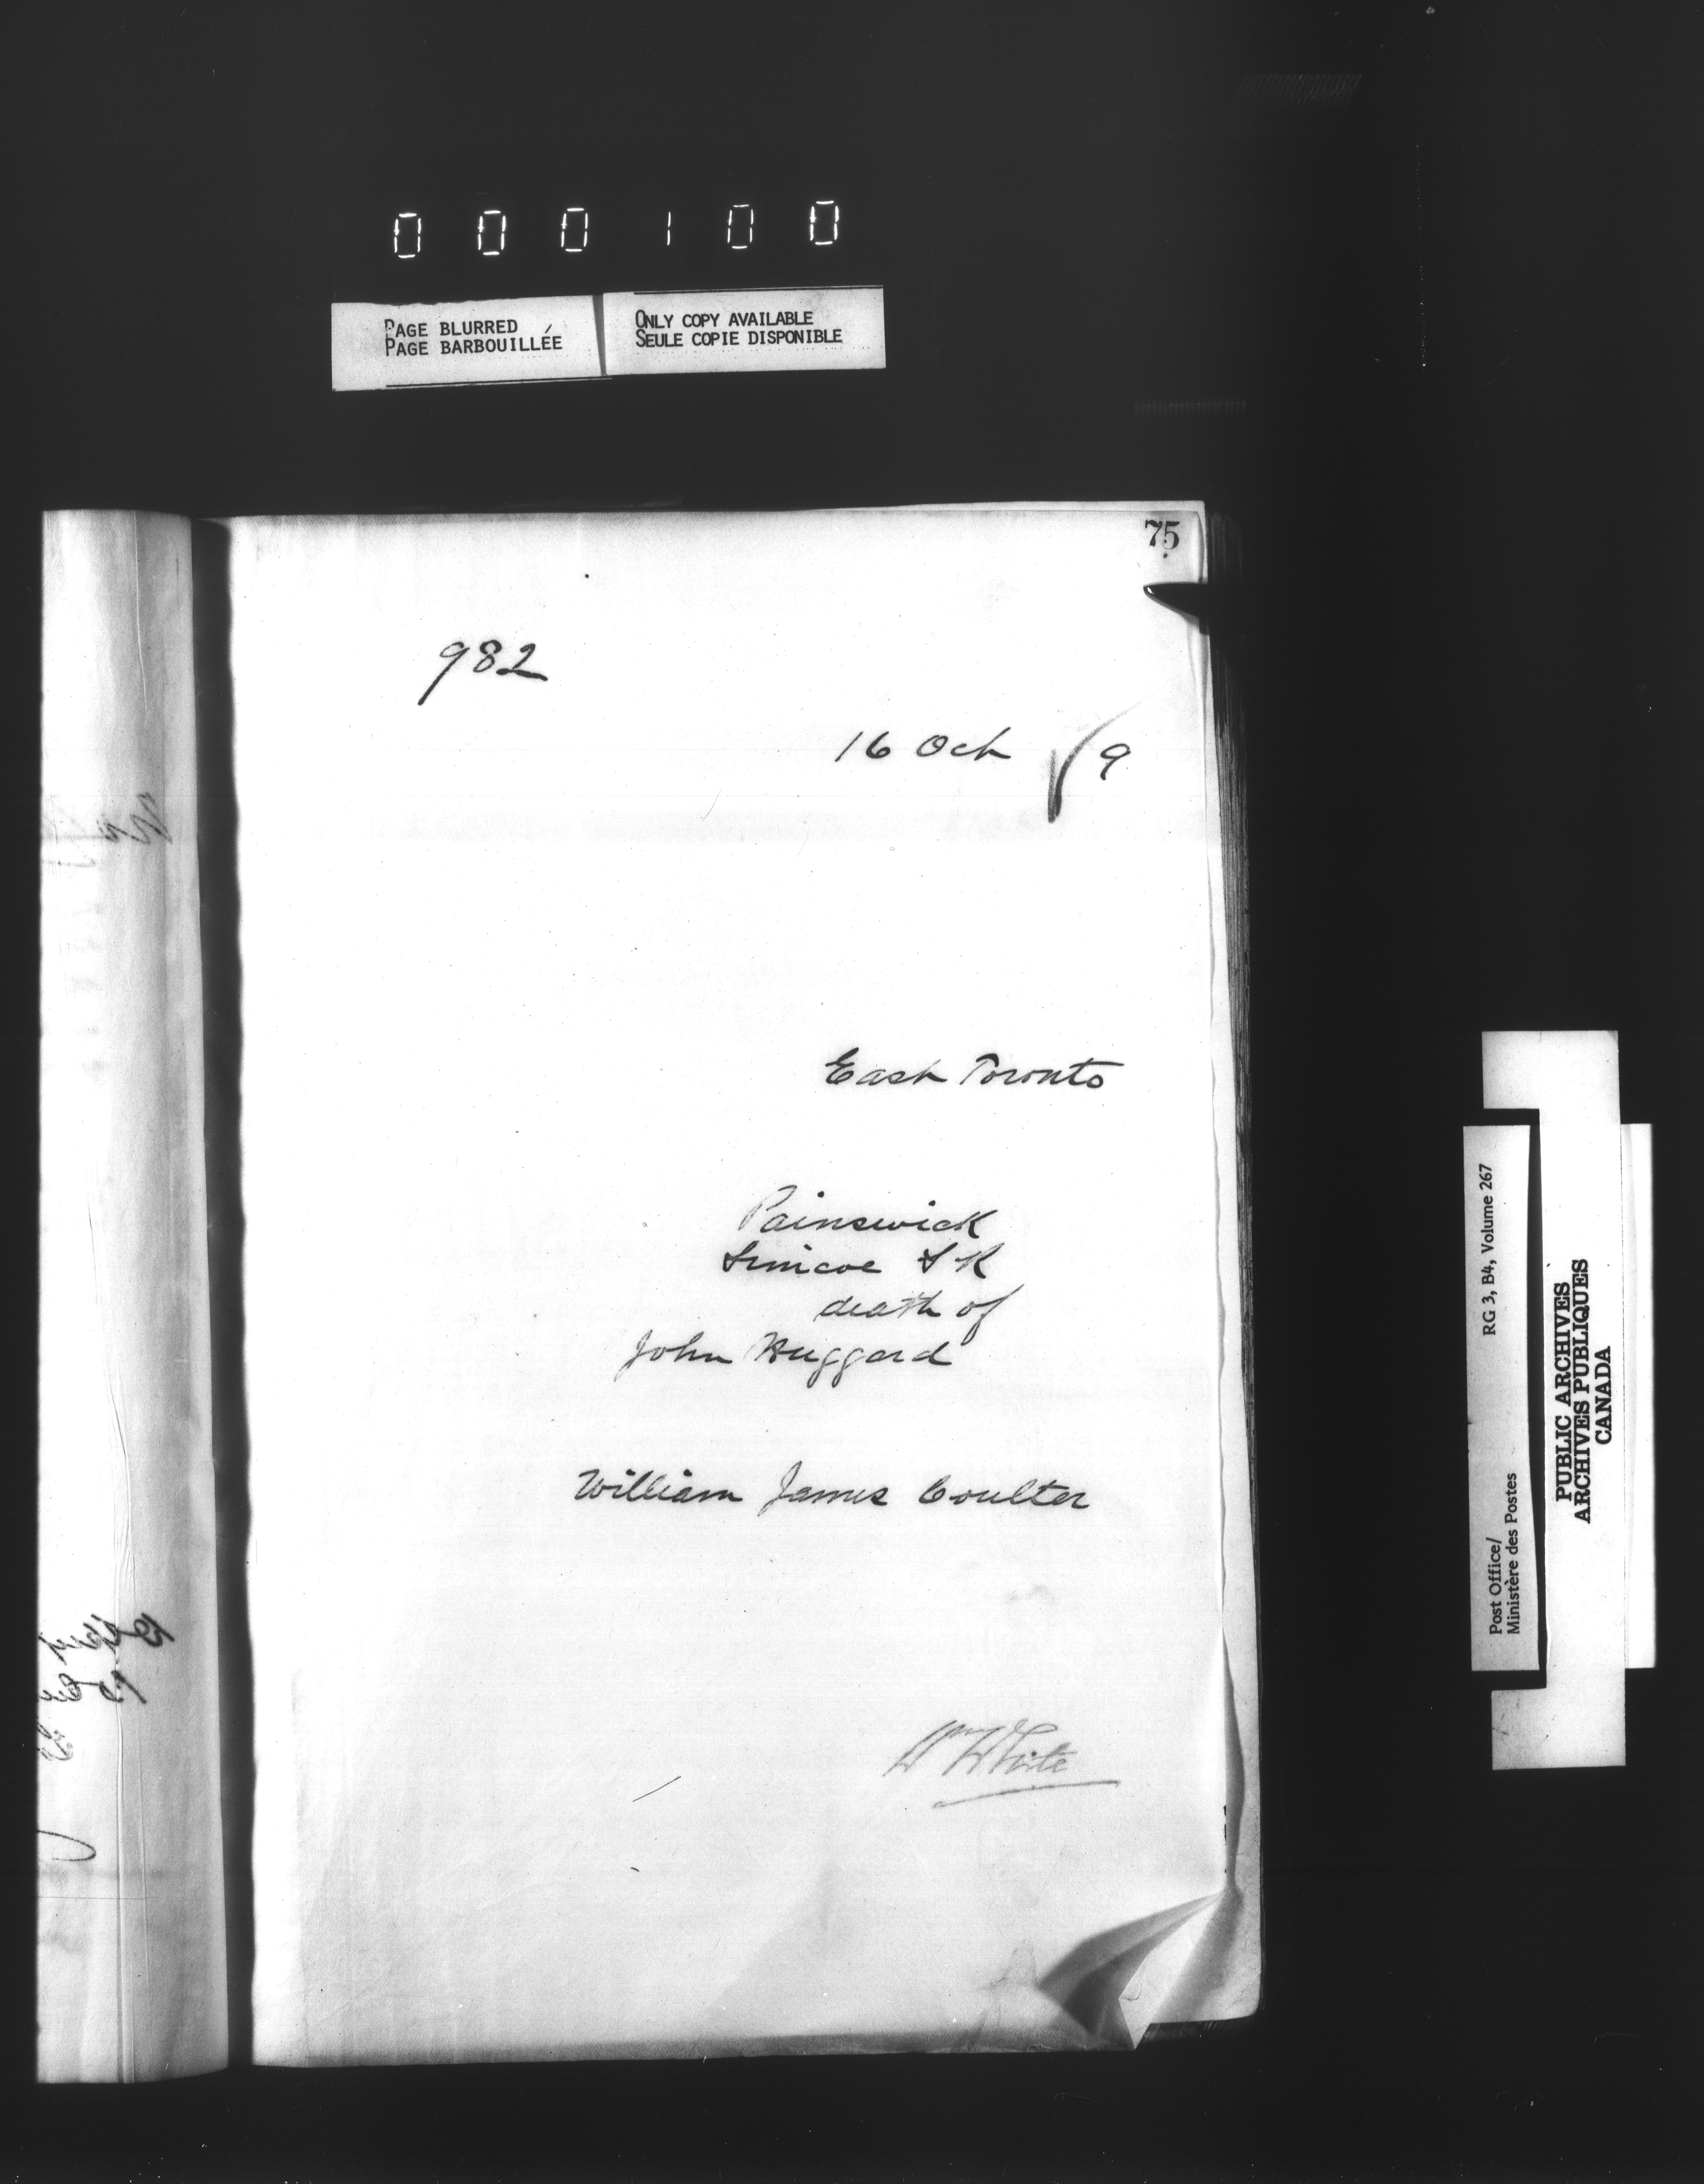 000100
PAGE BLURRED
PAGE BARBOUILLÉE
ONLY COPY AVAILABLE
SEULE COPIE DISPONIBLE
75
982
16 Oct 9
East Toronto
Painswick
Simcoe S R
death of
John Huggard
William James Coulter
Wm White
RG 3, B4, Volume 267
Post Office/
Ministère des Postes
PUBLIC ARCHIVES
ARCHIVES PUBLIQUES
CANADA